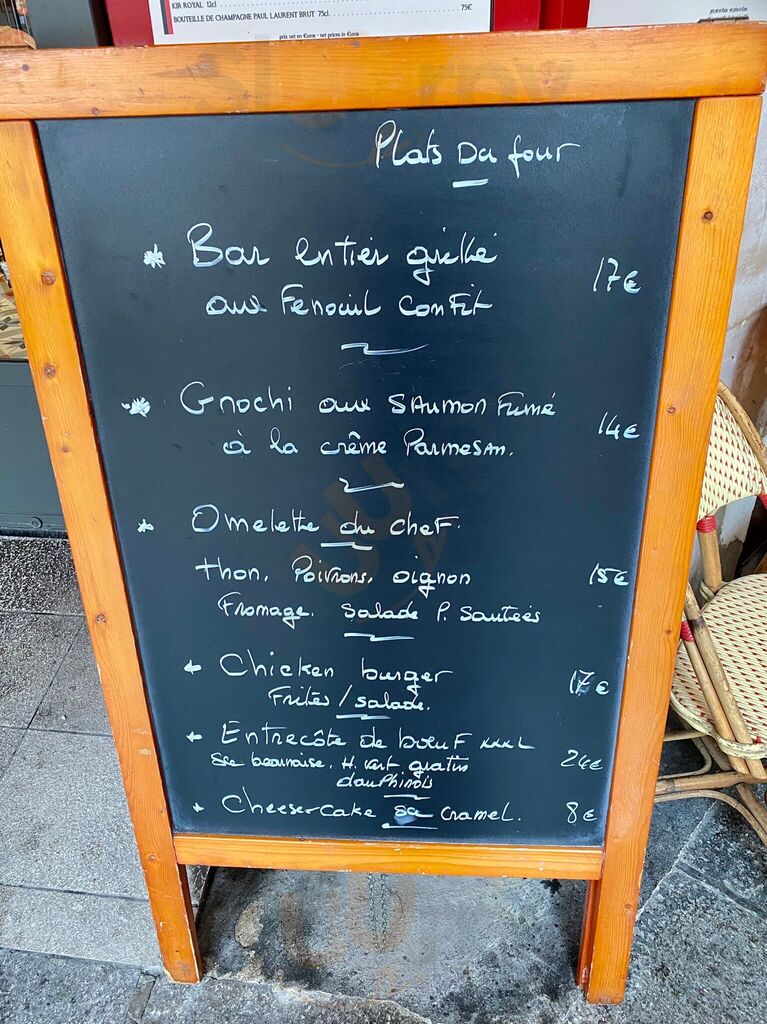 KIR ROYAL 12cl
BOUTEILLE DE CHAMPAGNE PAUL LAURENT BRUT 75cl. 75€
prix net en €uros - net prices in €uros
Plats Du four
* Bar entier grillé 17€
aux Fenouil Confit
* Gnochi aux SAUMON Fumé 14€
à la crème PARMESAN.
* Omelette du chef.
thon. Poivrons. oignon 15€
Fromage. Salade P. Sautées
* Chicken burger 17€
Frites / salade.
* Entrecôte de boeuf XXXL 24€
Sce bearnaise. H. vert gratin
dauPhinois
* Cheesercake sa Cramel. 8€